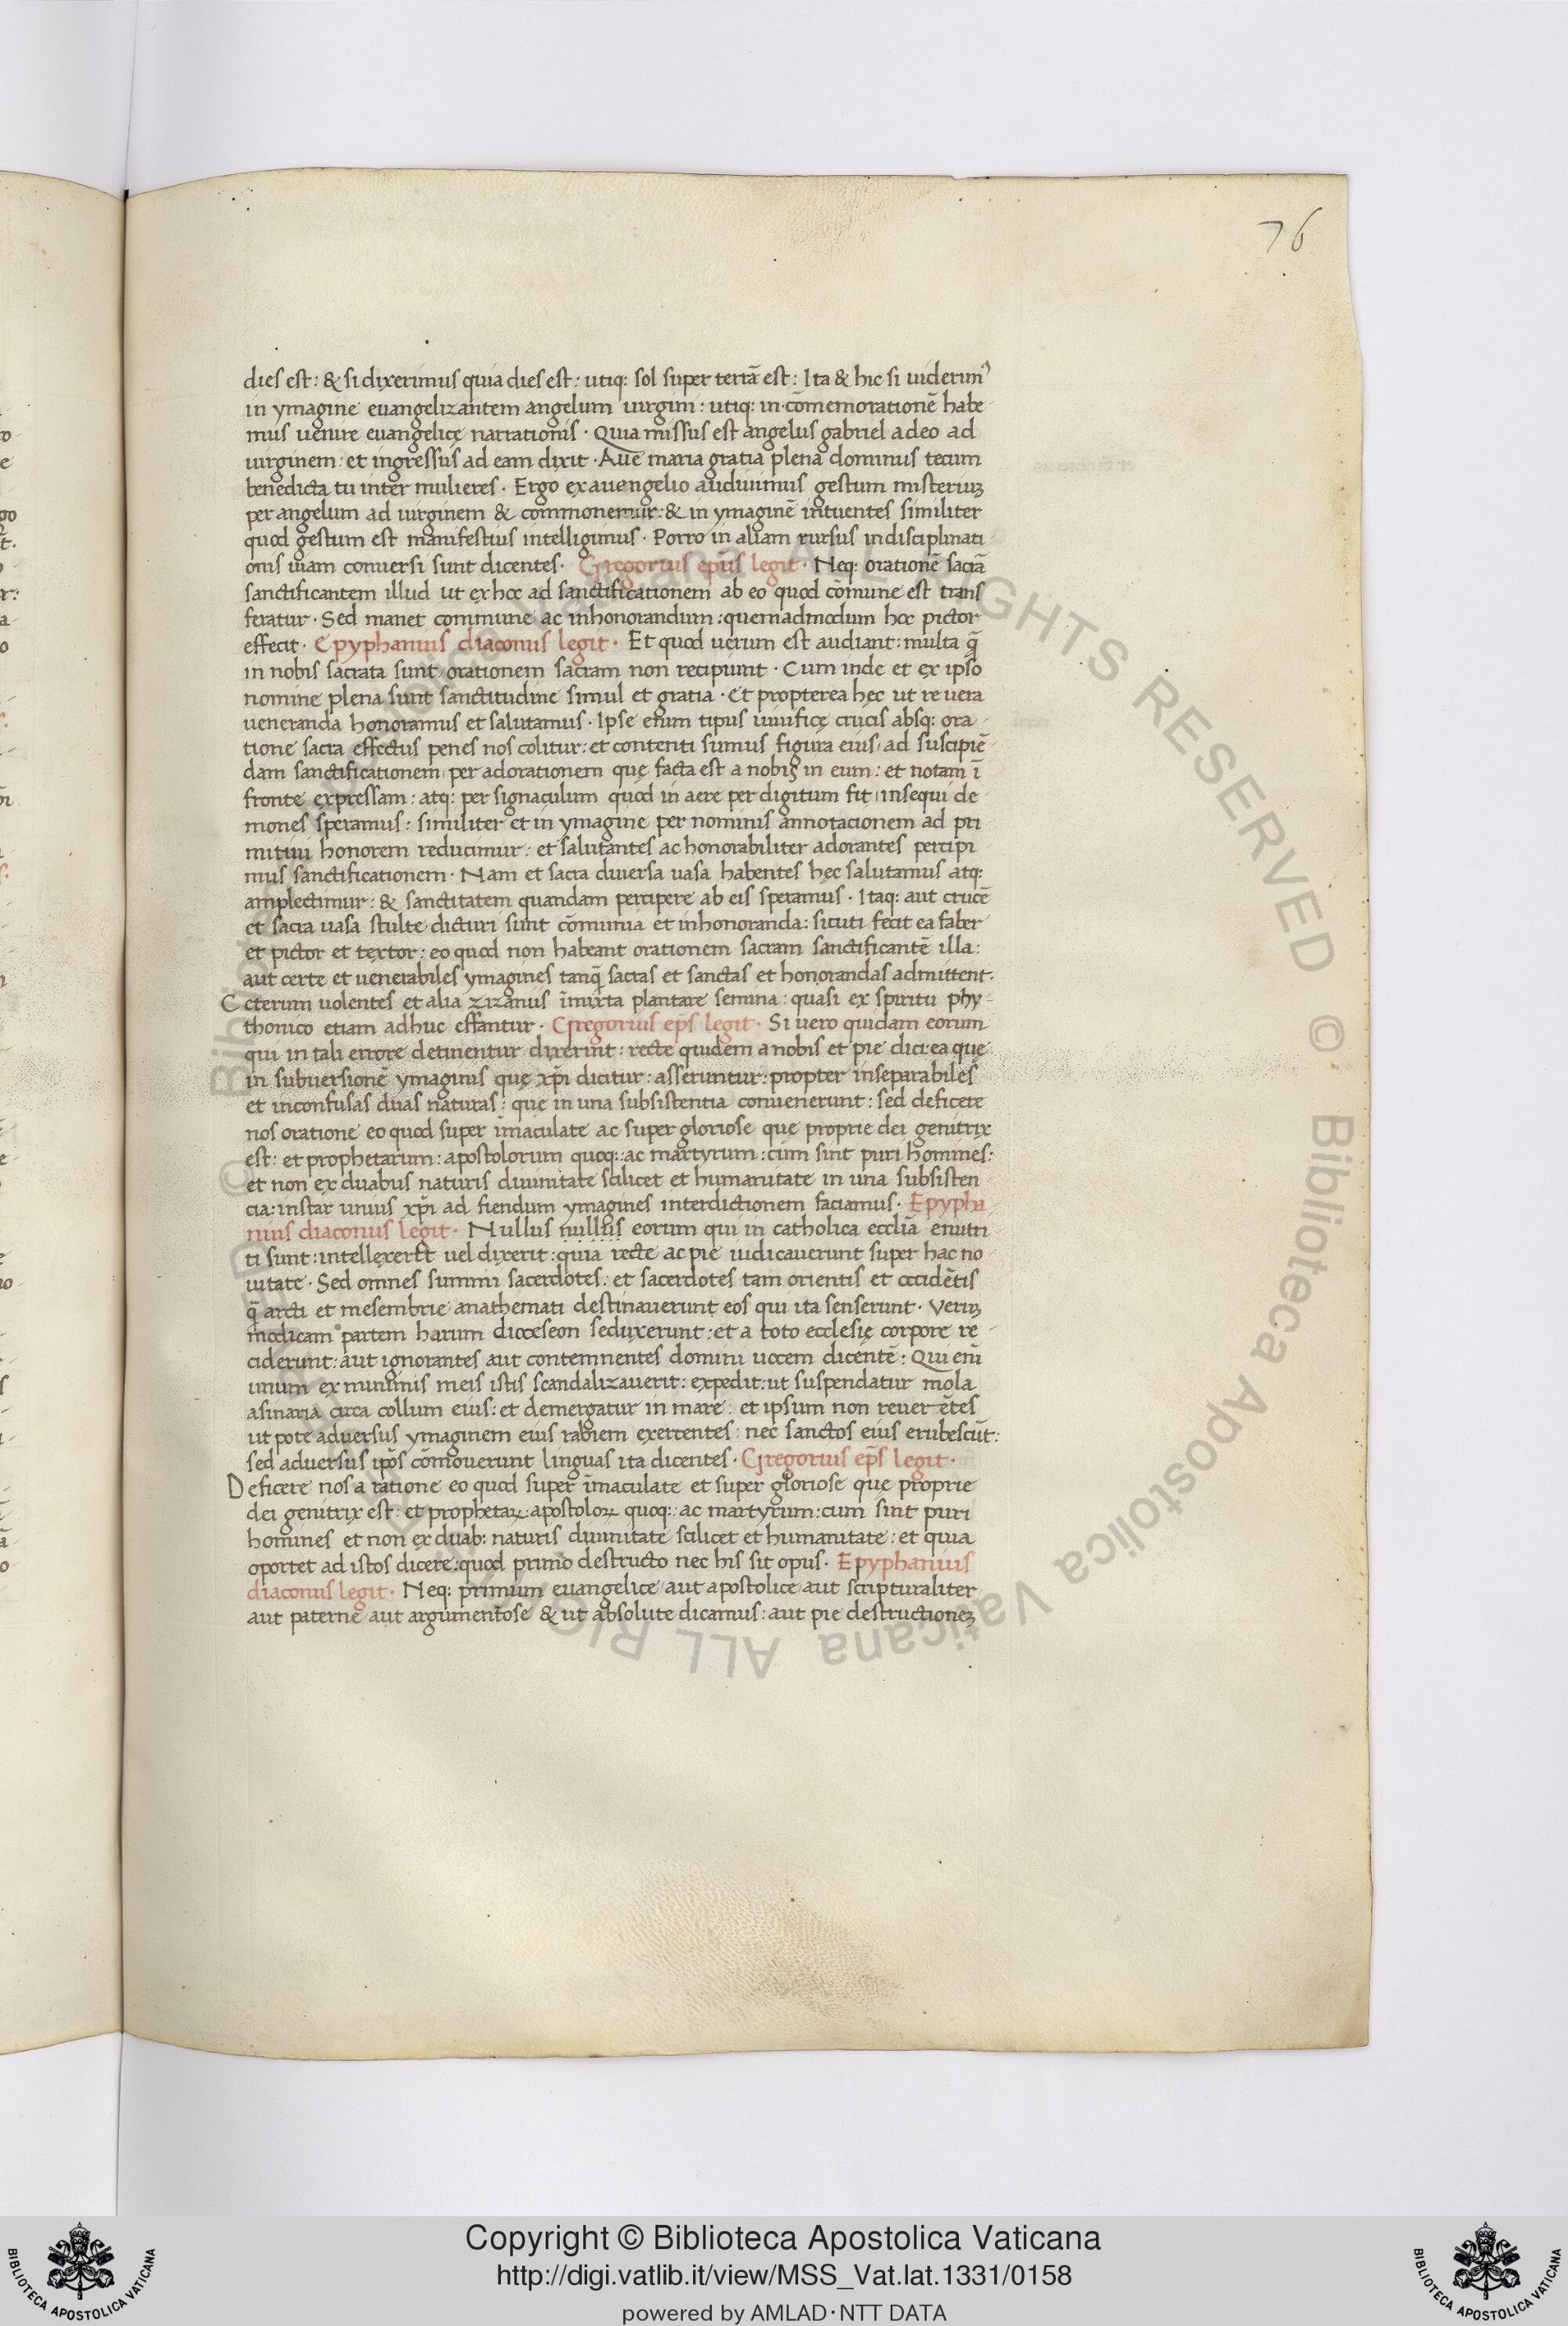 76
dies est: & si dixerimus quia dies est: utiq: sol super terrā est: Ita & hic si uiderim᾿
in ymagine euangelizantem angelum uirgini: utiq: in cōmemorationē habe-
mus uenire euangelicę narrationis · Quia missus est angelus gabriel a deo ad
uirginem: et ingressus ad eam dixit · Aue maria gratia plena dominus tecum
benedicta tu inter mulieres · Ergo ex auengelio audiuimus gestum misteriuꝫ
per angelum ad uirginem & commonemur: & in ymaginē intuentes similiter
quod gestum est manifestius intelligimus · Porro in aliam rursus indisciplinati-
onis uiam conuersi sunt dicentes · Gregorius ep̄us legit · Neq: orationē sacrā
sanctificantem illud ut ex hoc ad sanctificationem ab eo quod cōmune est trans
feratur · Sed manet commune ac inhonorandum: quemadmodum hoc pictor
effecit · Epyphanius diaconus legit · Et quod uerum est audiant: multa q̄
in nobis sacrata sunt orationem sacram non recipiunt · Cum inde et ex ipso
nomine plena sunt sanctitudine simul et gratia · Et propterea hec ut re uera
ueneranda honoramus et salutamus · Ipse enim tipus uiuificę crucis absq: ora-
tione sacra effectus penes nos colitur: et contenti sumus figura eius, ad suscipiē-
dam sanctificationem, per adorationem quę facta est a nobis in eum: et notam ī
fronte expressam: atq: per signaculum quod in aere per digitum fit, insequi de-
mones speramus: similiter et in ymagine per nominis annotacionem ad pri-
mitiui honorem reducimur: et salutantes ac honorabiliter adorantes percipi-
mus sanctificationem · Nam et sacra diuersa uasa habentes hęc salutamus atq:
amplectimur: & sanctitatem quandam percipere ab eis speramus · Itaq: aut crucē
et sacra uasa stulte dicturi sunt cōmunia et inhonoranda: sicuti fecit ea faber
et pictor et textor: eo quod non habeant orationem sacram sanctificantē illa:
aut certe et uenerabiles ymagines tanq̄ sacras et sanctas et honorandas admittent·
Ceterum uolentes et alia zizaniis īmixta plantare semina: quasi ex spiritu phy-
thonico etiam adhuc effantur · Gregorius ep̄s legit · Si uero quidam eorum
qui in tali errore detinentur dixerint: recte quidem a nobis et pie dici: ea que
in subuersionē ymaginis quę xp̄i dicitur: asseruntur: propter inseparabiles
et inconfusas duas naturas: que in una subsistentia conuenerunt: sed deficere
nos oratione eo quod super īmaculate ac super gloriose que proprie dei genitrix
est: et prophetarum: apostolorum quoq: ac martyrum: cum sint puri homines:
et non ex duabus naturis diuinitate scilicet et humanitate in una subsisten
cia: instar unius xp̄i ad fiendum ymagines interdictionem faciamus · Epypha
nius diaconus legit · Nullus nullus eorum qui in catholica eccl̄ia enutri
ti sunt: intellexerit uel dixerit: quia recte ac pie iudicauerunt super hac no-
uitate · Sed omnes summi sacerdotes: et sacerdotes tam orientis et occidētis
q̄ arcti et mesembrie anathemati destinauerunt eos qui ita senserunt · Veruꝫ
modicam partem harum dioceseon seduxerunt: et a toto ecclesię corpore re-
ciderunt: aut ignorantes aut contemnentes domini uocem dicentē: Qui eni̅
unum ex minimis meis istis scandalizauerit: expedit: ut suspendatur mola
asinaria circa collum eius: et demergatur in mare: et ipsum non reuerētes
ut pote aduersus ymaginem eius rabiem exercentes: nec sanctos eius erubescūt:
sed aduersus ip̄os cōmouerunt linguas ita dicentes · Gregorius ep̄s legit ·
Deficere nos a ratione eo quod super īmaculate et super gloriose quę proprie
dei genitrix est: et prophetaꝝ: apostoloꝝ quoq: ac martyrum: cum sint puri
homines et non ex duab: naturis diuinitate scilicet et humanitate: et quia
oportet ad istos dicere: quod primo destructo nec his sit opus · Epyphanius
diaconus legit · Neq: primum euangelice aut apostolice aut scripturaliter
aut paterne aut argumentose & ut absolute dicamus: aut pie destructioneꝫ
© Biblioteca Apostolica Vaticana ALL RIGHTS RESERVED
Copyright © Biblioteca Apostolica Vaticana
http://digi.vatlib.it/view/MSS_Vat.lat.1331/0158
powered by AMLAD·NTT DATA
BIBLIOTECA APOSTOLICA VATICANA
BIBLIOTECA APOSTOLICA VATICANA